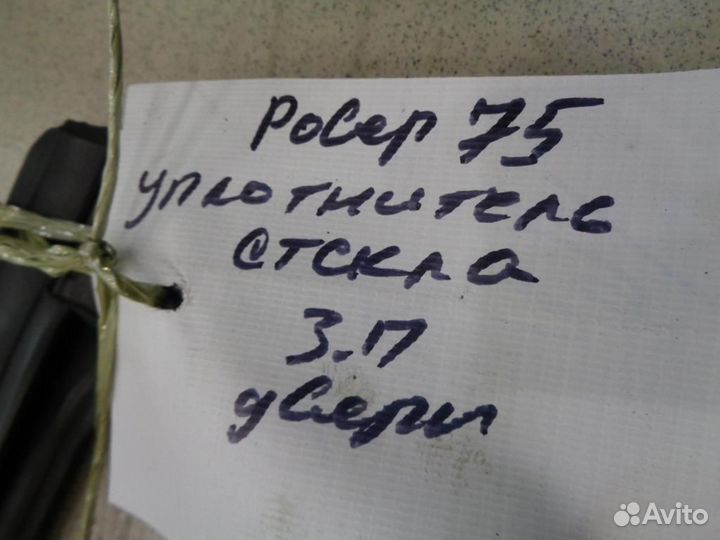 Ровер 75
уплотнитель
стскла
З.П
двери
Avito